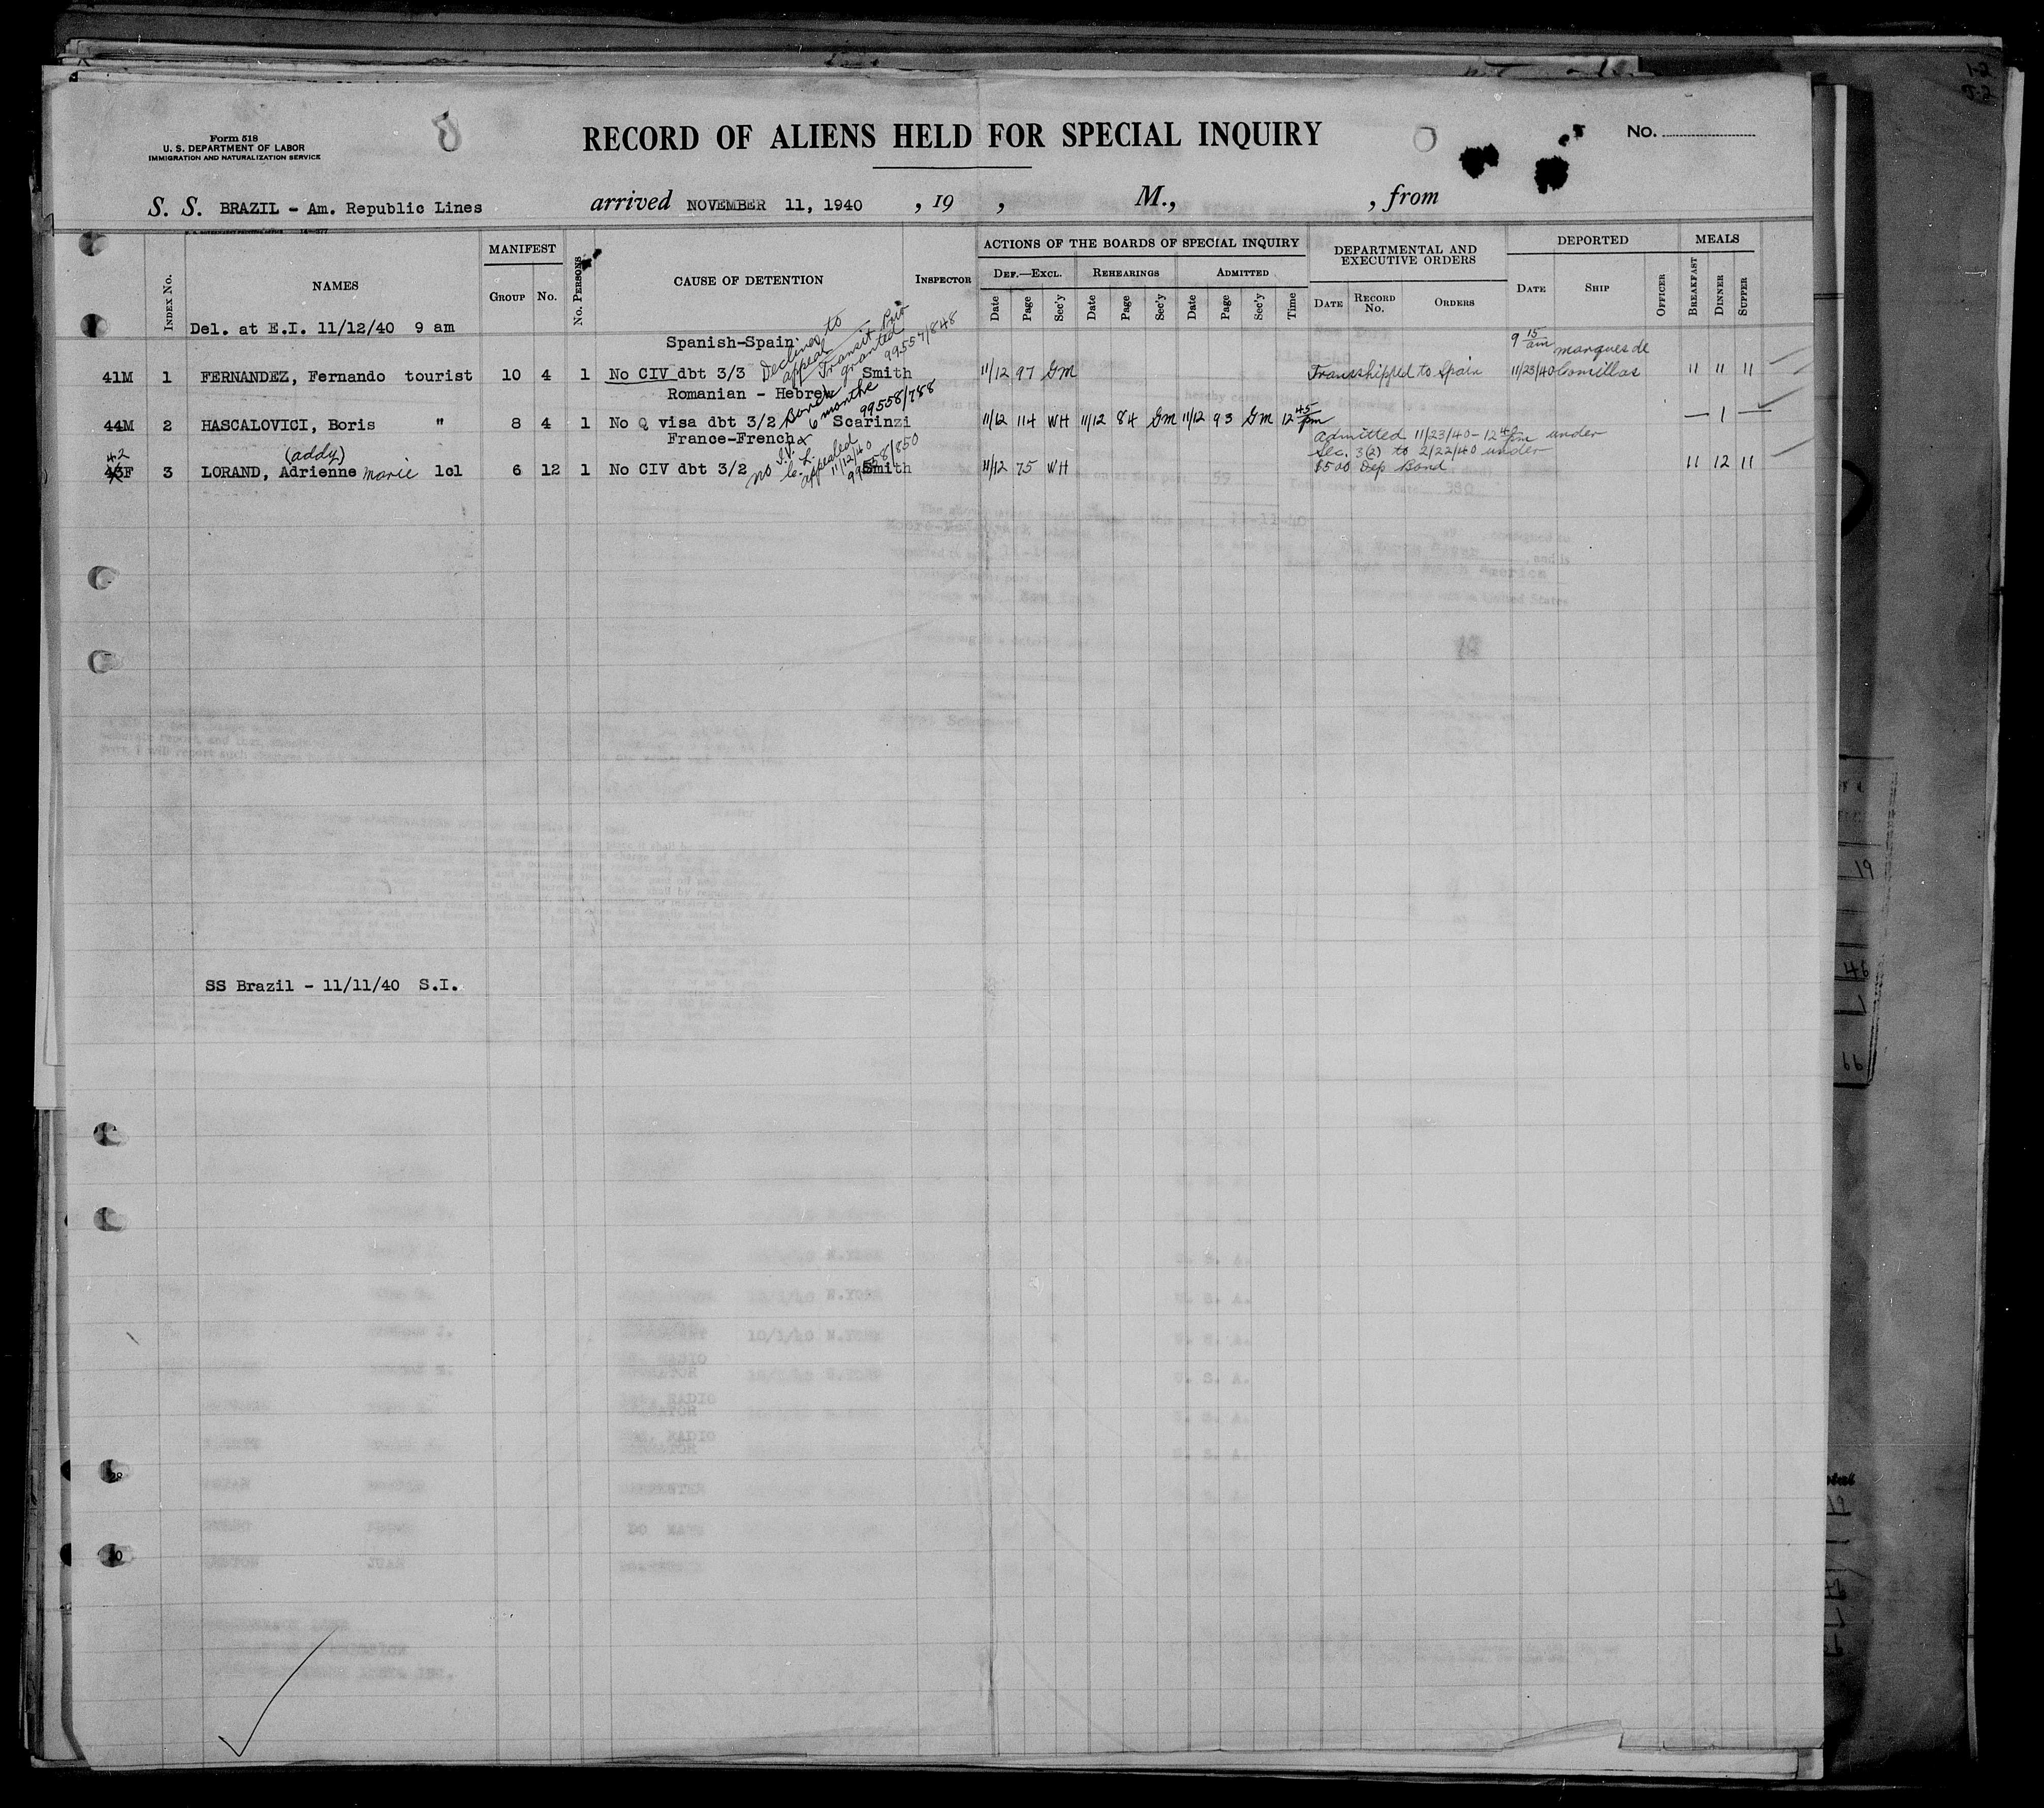 Form 518
U. S. DEPARTMENT OF LABOR
IMMIGRATION AND NATURALIZATION SERVICE
8
RECORD OF ALIENS HELD FOR SPECIAL INQUIRY
No.
S. S. BRAZIL - Am. Republic Lines arrived NOVEMBER 11, 1940 , 19 , M., , from
INDEX NO. NAMES MANIFEST GROUP NO. NO. PERSONS CAUSE OF DETENTION INSPECTOR
ACTIONS OF THE BOARDS OF SPECIAL INQUIRY
DEF.—EXCL. REHEARINGS ADMITTED
Date Page Sec'y Date Page Sec'y Date Page Sec'y Time
DEPARTMENTAL AND EXECUTIVE ORDERS
DATE RECORD NO. ORDERS
DEPORTED
DATE SHIP OFFICER
MEALS
BREAKFAST DINNER SUPPER
Del. at E.I. 11/12/40 9 am
Spanish-Spain
Declines to appeal Transit Priv granted 99557/848
9 15 am marques de
41M 1 FERNANDEZ, Fernando tourist 10 4 1 No CIV dbt 3/3 Smith 11/12 97 GM Transhipped to Spain 11/23/40 Comillas 11 11 11
Romanian - Hebrew
Bond 6 months 99558/788
44M 2 HASCALOVICI, Boris " 8 4 1 No Q visa dbt 3/2 Scarinzi 11/12 114 WH 11/12 84 GM 11/12 93 GM 12 45 pm — 1 —
France-French
(addy)
42
43F 3 LORAND, Adrienne Marie 1cl 6 12 1 No CIV dbt 3/2 Smith 11/12 75 WH 11 12 11
appealed 11/12/40 99558/850
Admitted 11/23/40 - 12 pm under
Sec. 3(2) to 2/22/40 under
$500 Dep Bond
SS Brazil - 11/11/40 S.I.